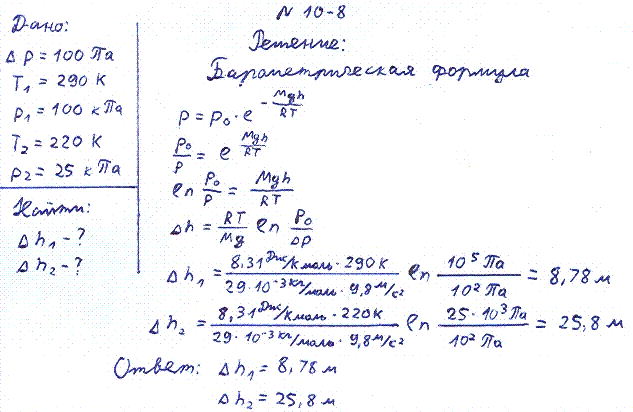 N 10-8
Дано:
Δp = 100 Па
T₁ = 290 К
p₁ = 100 кПа
T₂ = 220 К
p₂ = 25 кПа
Найти:
Δh₁ - ?
Δh₂ - ?
Решение:
Барометрическая формула
p = p₀ · e^(-Mgh/RT)
p₀/p = e^(Mgh/RT)
ln p₀/p = Mgh/RT
Δh = RT/Mg ln p₀/Δp
Δh₁ = 8,31 Дж/К моль · 290 К / 29 · 10⁻³ кг/моль · 9,8 м/с² ln 10⁵ Па / 10² Па = 8,78 м
Δh₂ = 8,31 Дж/К моль · 220 К / 29 · 10⁻³ кг/моль · 9,8 м/с² ln 25 · 10³ Па / 10² Па = 25,8 м
Ответ: Δh₁ = 8,78 м
Δh₂ = 25,8 м